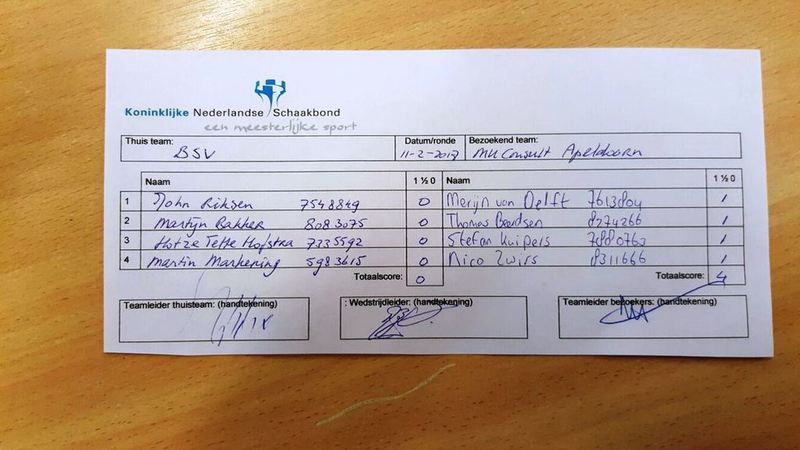 Koninklijke Nederlandse Schaakbond
een meesterlijke sport
Thuis team: BSV Datum/ronde 11-2-2017 Bezoekend team: MuConsult Apeldoorn
Naam 1 ½ 0 Naam 1 ½ 0
1 John Riksen 7548849 0 Merijn van Delft 7613804 1
2 Martijn Bakker 8083075 0 Thomas Beerdsen 8274266 1
3 Hotze Tette Hofstra 7235592 0 Stefan Kuipers 7880763 1
4 Martin Markering 5983615 0 Nico Zwirs 8311666 1
Totaalscore: 0 Totaalscore: 4
Teamleider thuisteam: (handtekening) : Wedstrijdleider: (handtekening) Teamleider bezoekers: (handtekening)